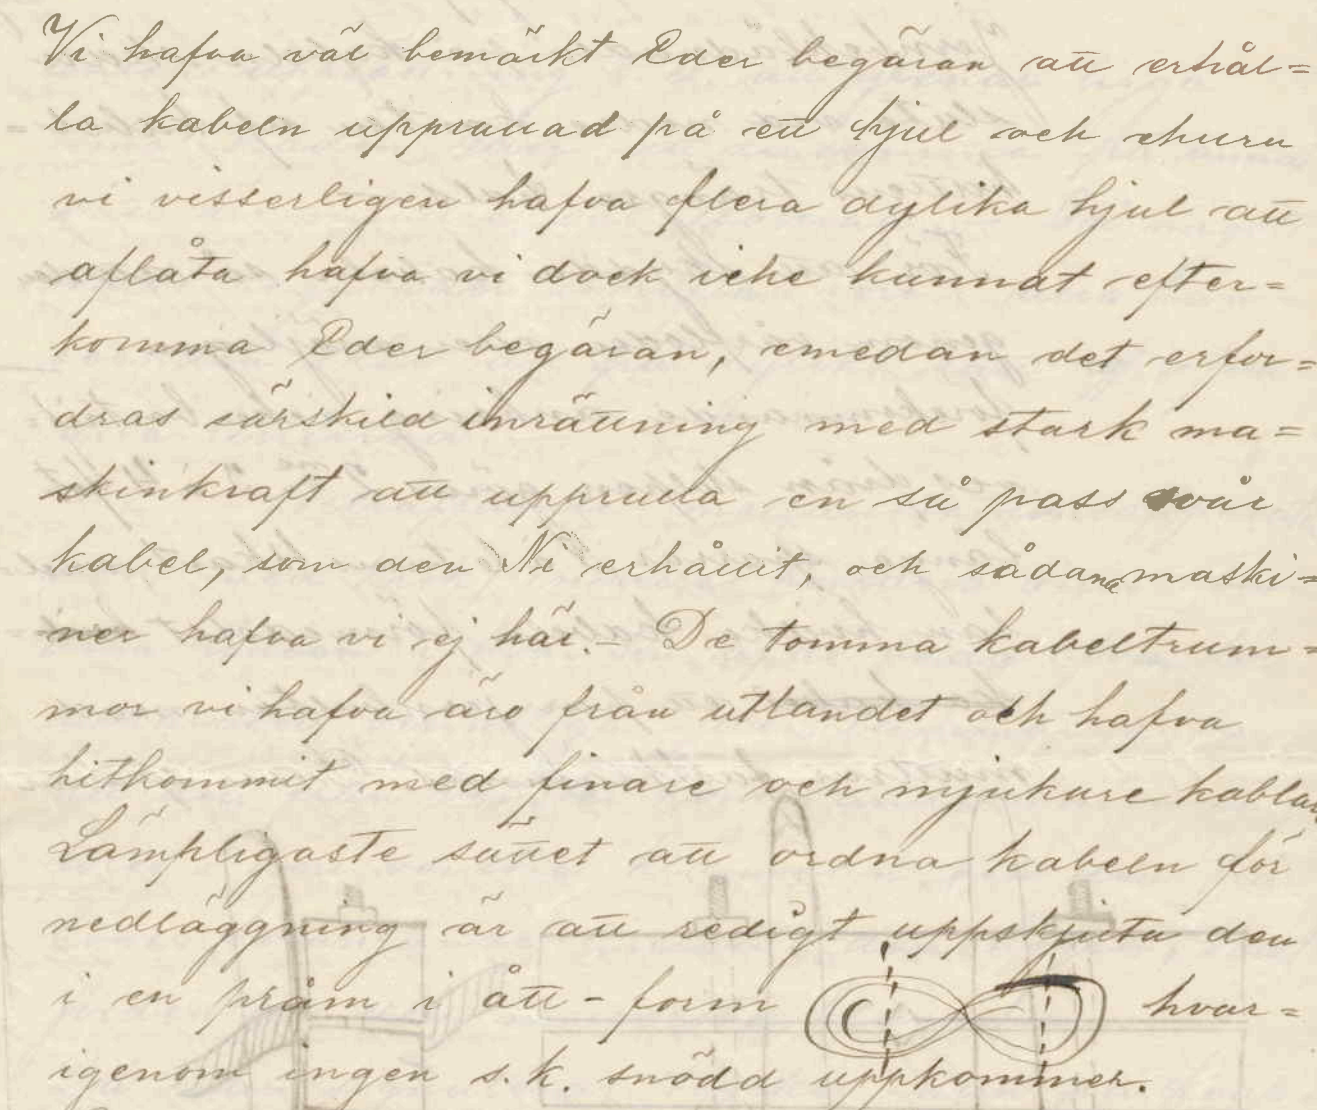 Vi hafva väl bemärkt Eder begäran att erhål=
la kabeln upprullad på ett hjul och ehuru
vi visserligen hafva flera dylika hjul att
aflåta hafva vi dock icke kunnat efter=
komma Eder begäran, emedan det erfor=
dras särskild inrättning med stark ma=
skinkraft att upprulla en så pass svår
kabel, som den Ni erhållit, och sådana maski=
ner hafva vi ej här. – De tomma kabeltrum=
mor vi hafva äro från utlandet och hafva
hitkommit med finare och mjukare kablar.
Lämpligaste sättet att ordna kabeln för
nedläggning är att redigt uppskjuta den
i en pråm i ått-form hvar=
igenom ingen s.k. snodd uppkommer.